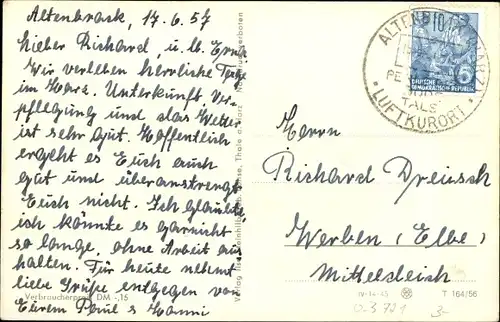 Altenbrack, 17.6.57
Lieber Richard, u. lb. Erna
Wir verleben herrliche Tage
im Harz. Unterkunft, Ver-
pflegung und das Wetter
ist sehr gut. Hoffentlich
ergeht es Euch auch
gut und überanstrengt
Euch nicht. Ich glaubte,
ich könnte es garnicht
so lange, ohne Arbeit aus
halten. Für heute nehmt
liebe Grüße entgegen von
Eurem Paul & Hanni
Verbraucherpreis DM -,15
Thale a. Harz
ALTENB
LUFTKURORT
DEUTSCHE
DEMOKRATISCHE REPUBLIK
Herrn
Richard
Werben (Elbe)
IV-14-45
T 164/56